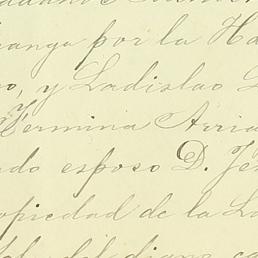 anga por la Ha
o, y Ladislao
Fermina Arria
do esposo D. Je
opiedad de la La
del diano ca